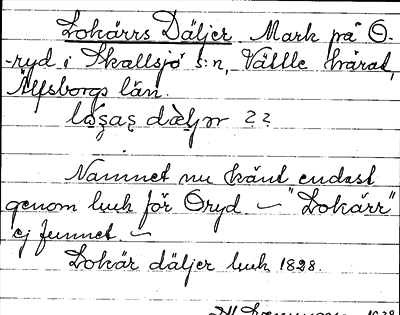 Lokärrs Däljer. Mark på Ö-
-ryd i Skallsjö s:n, Vättle härad,
Älfsborgs län.
däljar ??
Namnet nu känt endast
genom huk för Öryd. — "Lokärr"
ej funnet. —
Lokär däljer huk 1828.